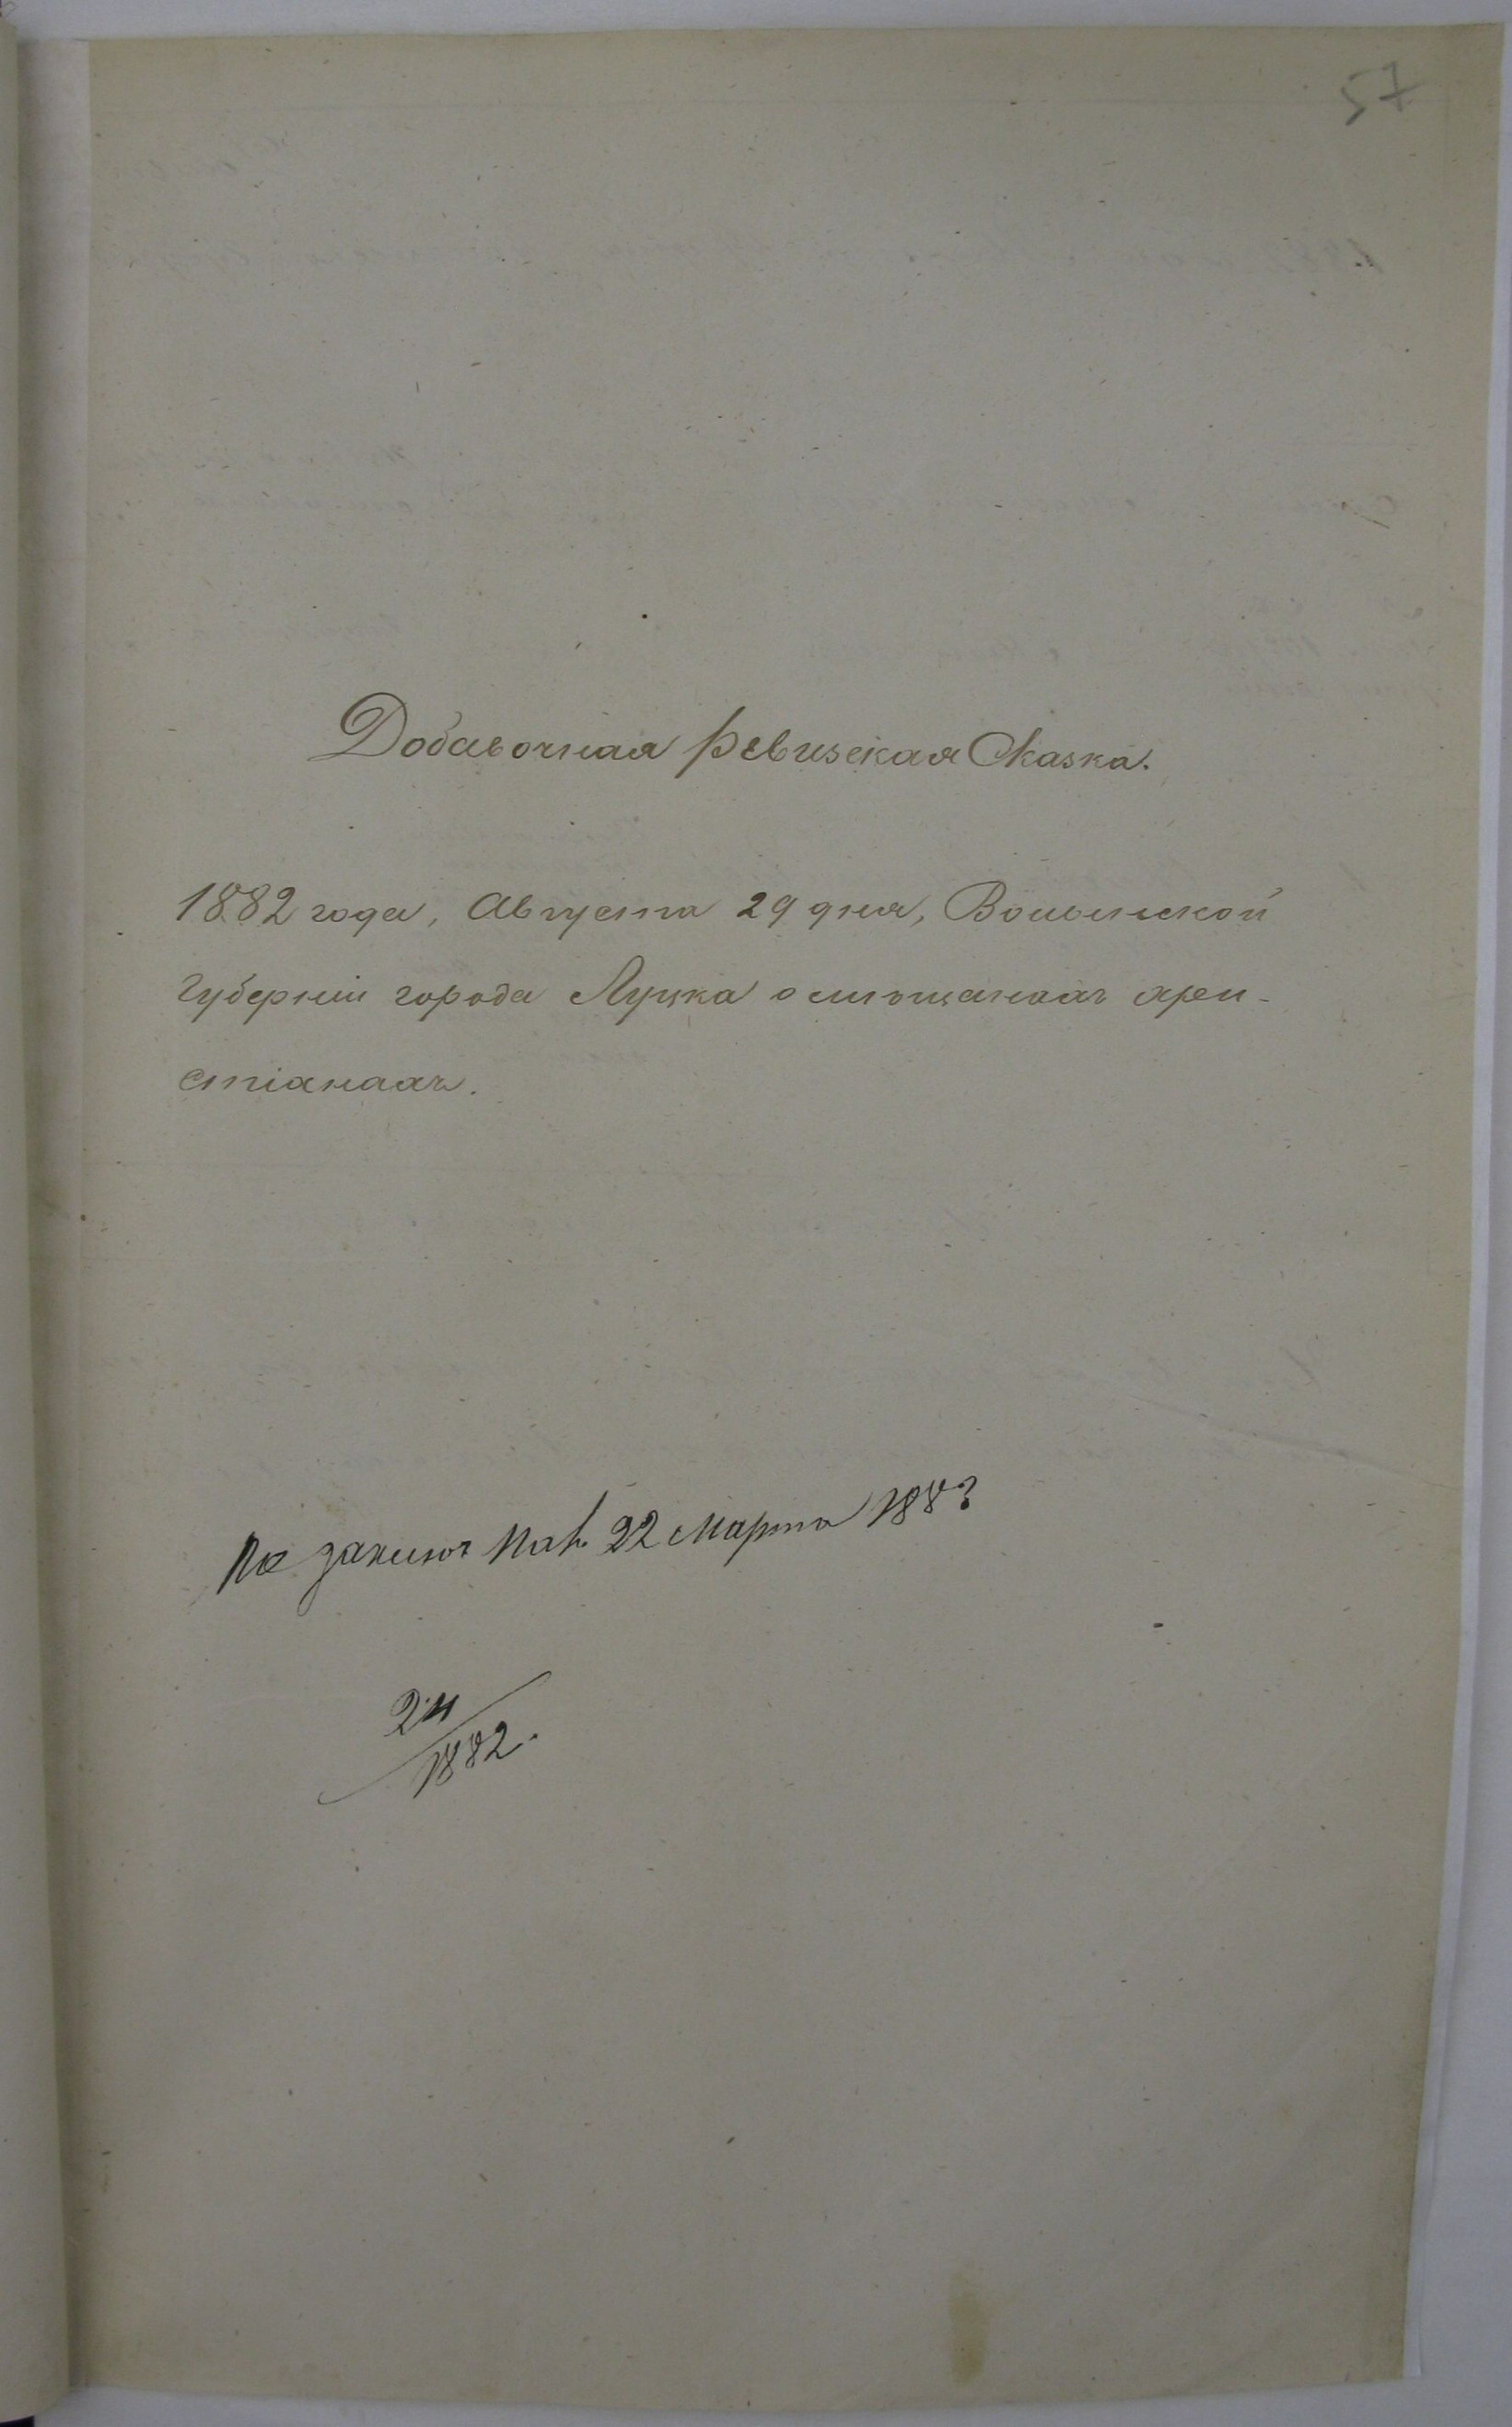 57
Добавочная Ревизская Сказка.
1882 года, Августа 29 дня, Волынской
Губерніи города Луцка о мѣщанахъ хри-
стіанахъ.
По заключ Пал. 22 Марта 1883
24
1882.